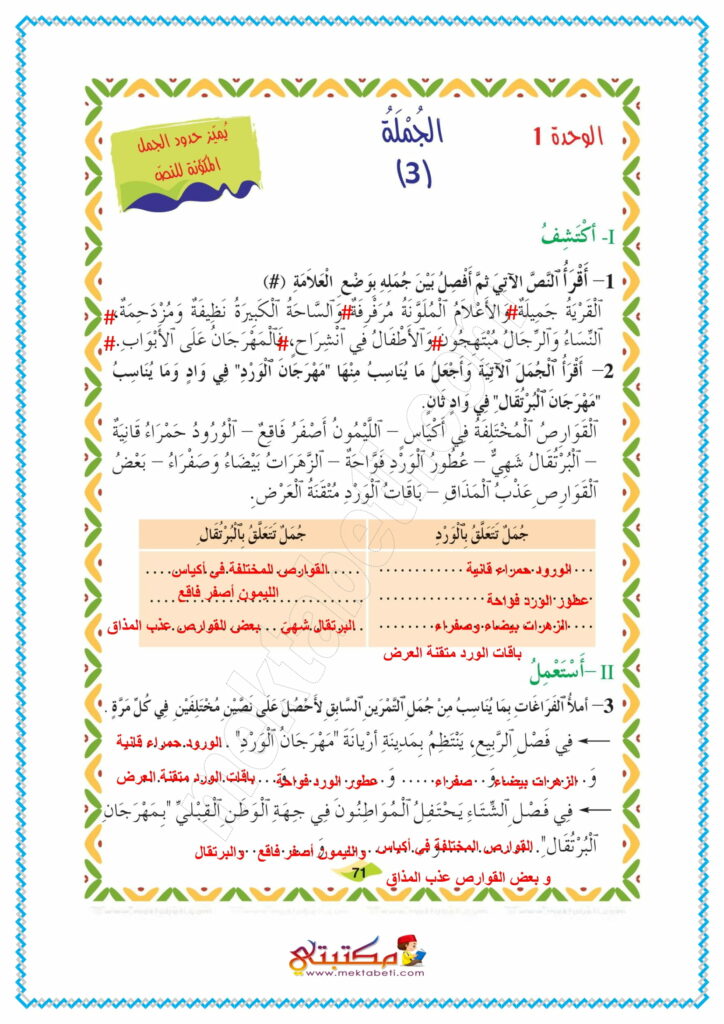 الوحدة 1
الجُمْلَةُ
(3)
يُميّز حدود الجمل
المكوّنة للنصّ
I- أَكْتَشِفُ
1- أَقْرَأُ ٱلنَّصَّ ٱلآتِيَ ثمَّ أَفْصِلُ بَيْنَ جُمَلِهِ بِوَضْعِ ٱلْعَلاَمَةِ (#)
ٱلْقَرْيَةُ جَمِيلَةٌ#وَٱلأَعْلاَمُ ٱلْمُلَوَّنَةُ مُرَفْرِفَةٌ#وَٱلسَّاحَةُ ٱلْكَبِيرَةُ نَظِيفَةٌ وَمُزْدَحِمَةٌ.#
ٱلنِّسَاءُ وَٱلرِّجَالُ مُبْتَهِجُونَ#وَٱلأَطْفَالُ فِي ٱنْشِرَاحٍ،#فَٱلْمَهْرَجَانُ عَلَى ٱلأَبْوَابِ.#
2- أَقْرَأُ ٱلْجُمَلَ ٱلآتِيَةَ وَأَجْعَلُ مَا يُنَاسِبُ مِنْهَا "مَهْرَجَانَ ٱلْوَرْدِ" فِي وَادٍ وَمَا يُنَاسِبُ
"مَهْرَجَانَ ٱلْبُرْتُقَالِ" فِي وَادٍ ثَانٍ.
ٱلْقَوَارِصُ ٱلْمُخْتَلِفَةُ فِي أَكْيَاسٍ - ٱللَّيْمُونُ أَصْفَرُ فَاقِعٌ - ٱلْوُرُودُ حَمْرَاءُ قَانِيَةٌ
- ٱلْبُرْتُقَالُ شَهِيٌّ - عُطُورُ ٱلْوَرْدِ فَوَّاحَةٌ - ٱلزَّهَرَاتُ بَيْضَاءُ وَصَفْرَاءُ - بَعْضُ
ٱلْقَوَارِصِ عَذْبُ ٱلْمَذَاقِ - بَاقَاتُ ٱلْوَرْدِ مُتْقَنَةُ ٱلْعَرْضِ.
جُمَلٌ تَتَعَلَّقُ بِٱلْوَرْدِ جُمَلٌ تَتَعَلَّقُ بِٱلْبُرْتُقَالِ
الورود حمراء قانية القوارص المختلفة في أكياس
الليمون أصفر فاقع
عطور الورد فواحة
الزهرات بيضاء وصفراء البرتقال شهي بعض القوارص عذب المذاق
باقات الورد متقنة العرض
II- أَسْتَعْمِلُ
3- أملأُ ٱلْفَرَاغَاتِ بِمَا يُنَاسِبُ مِنْ جُمَلِ ٱلتَّمْرَينِ ٱلسَّابِقِ لأَحْصُلَ عَلَى نَصَّيْنِ مُخْتَلِفَيْنِ فِي كُلِّ مَرَّةٍ.
← فِي فَصْلِ ٱلرَّبِيعِ، يَنْتَظِمُ بِمَدِينَةِ أَرْيَانَةَ "مَهْرَجَانُ ٱلْوَرْدِ". الورود حمراء قانية
وَ الزهرات بيضاء و صفراء وَ عطور الورد فواحة وَ باقات الورد متقنة العرض
← فِي فَصْلِ ٱلشِّتَاءِ يَحْتَفِلُ ٱلْمُوَاطِنُونَ فِي جِهَةِ ٱلْوَطَنِ ٱلْقِبْلِيِّ "بِمَهْرَجَانِ
ٱلْبُرْتُقَالِ". القوارص المختلفة في أكياس والليمون أصفر فاقع وَ والبرتقال
و بعض القوارص عذب المذاق
71
مكتبتي
www.mektabeti.com